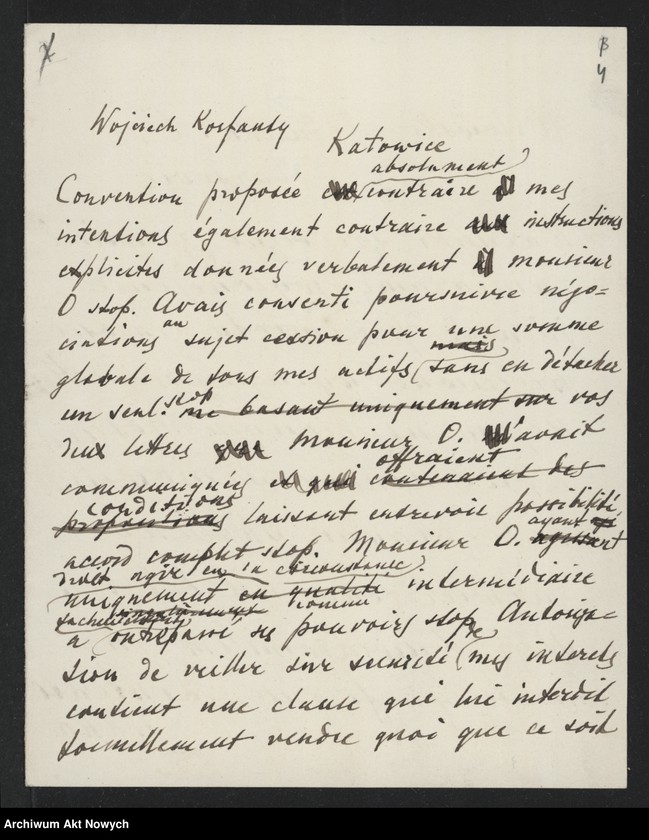 B
4
Wojciech Korfanty
Katowice
absolument
Convention proposée contraire à mes
intentions également contraire aux instructions
explicites données verbalement à monsieur
O stop. Avais consenti poursuivre négo=
ciations au sujet cession pour une somme
mais
globale de tous mes actifs sans en détacher
un seul. stop me basant uniquement sur vos
deux lettres Monsieur O. m'avait
offraient
communiqués contenaient des
conditions
propositions laissant entrevoir possibilité
accord complet stop. Monsieur O. ayant
droit agir en la circonstance
uniquement en qualité intermédiaire
comme
a outrepassé ses pouvoirs stop Autorisa=
tion de veiller sur securité de mes interets
contient une clause qui lui interdit
formellement vendre quoi que ce soit
Archiwum Akt Nowych